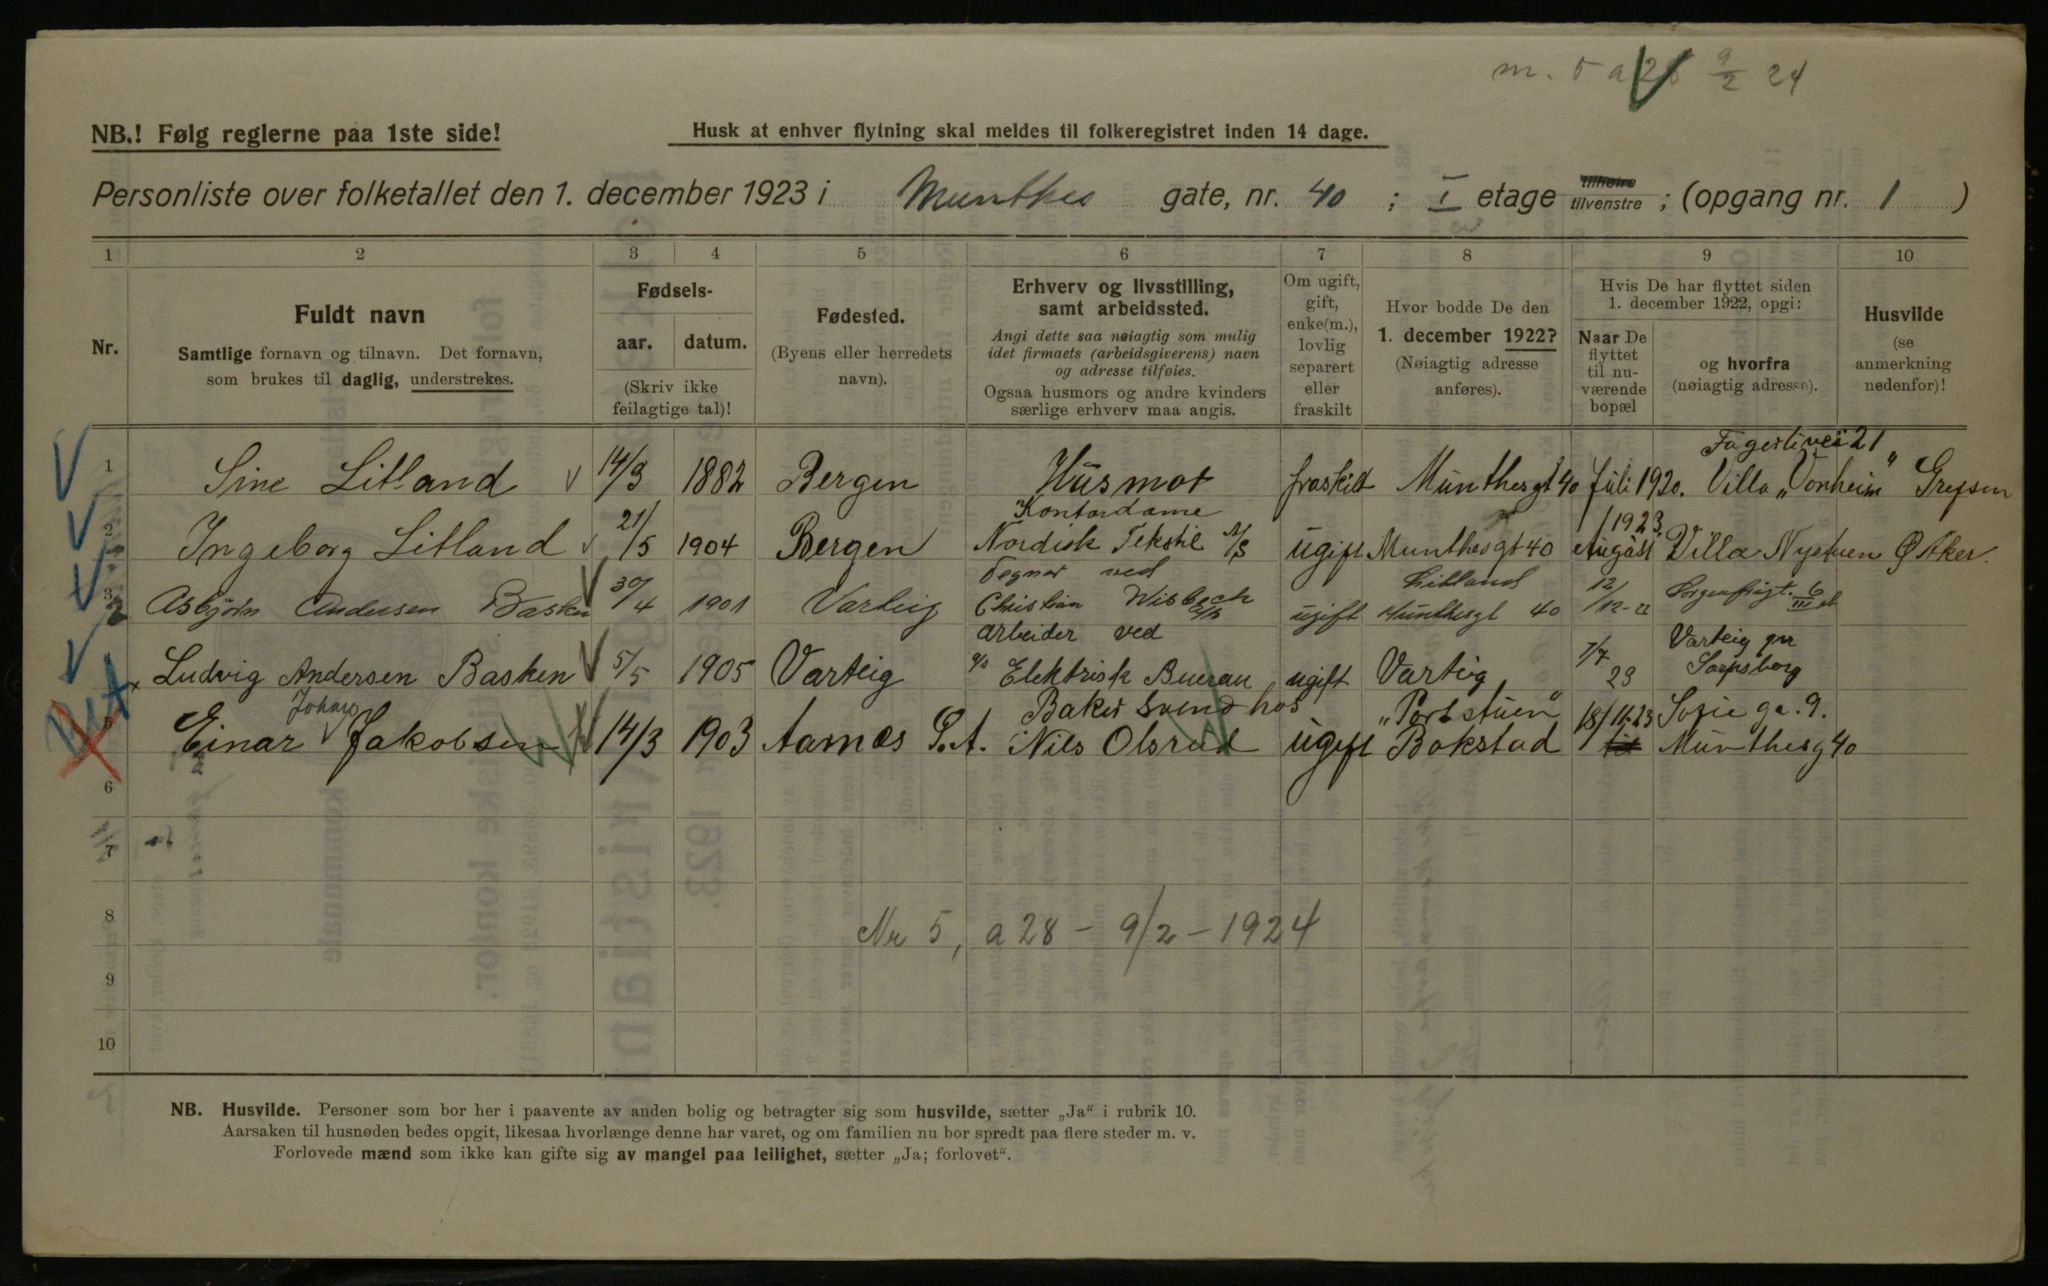 m. 5 a 28 9/2 24
NB.! Følg reglerne paa 1ste side!
Husk at enhver flytning skal meldes til folkeregistret inden 14 dage.
Personliste over folketallet den 1. december 1923 i Munthes gate, nr. 40 ; I etage tilhøire tilvenstre ; (opgang nr. 1 )
1 2 3 4 5 6 7 8 9 10
Nr.
Fuldt navn
Samtlige fornavn og tilnavn. Det fornavn,
som brukes til daglig, understrekes.
Fødsels-
aar. datum.
(Skriv ikke
feilagtige tal)!
Fødested.
(Byens eller herredets
navn).
Erhverv og livsstilling,
samt arbeidssted.
Angi dette saa nøiagtig som mulig
idet firmaets (arbeidsgiverens) navn
og adresse tilføies.
Ogsaa husmors og andre kvinders
særlige erhverv maa angis.
Om ugift,
gift,
enke(m.),
lovlig
separert
eller
fraskilt
Hvor bodde De den
1. december 1922?
(Nøiagtig adresse
anføres).
Hvis De har flyttet siden
1. december 1922, opgi:
Naar De
flyttet
til nu-
værende
bopæl
og hvorfra
(nøiagtig adresse).
Husvilde
(se
anmerkning
nedenfor)!
Fagerlivei 21
1 Sine Litland 14/3 1882 Bergen Husmor fraskilt Munthesgt 40 Juli 1920. Villa „Vonheim" Grefsen
Kontordame 1923
2 Ingeborg Litland 21/5 1904 Bergen Nordisk Tekstil A/S ugift Munthesgt 40 August Villa Nyetuen Ø Aker.
Tegner ved Litland
3 Asbjörn Andersen Basken 30/4 1901 Varteig Christian Wisbech A/S ugift Munthesgt 40 12/12-22 Sorgenfrigt. 6 III et
Arbeider ved Varteig pr
Ludvig Andersen Basken 5/5 1905 Varteig A/S Elektrisk Bureau ugift Varteig 7/7 23 Sarpsborg
Johan Baker Svend hos „Portstuen" 18/11.23 Sofie ga. 9.
5 Einar Jakobsen 14/3 1903 Aarnes S.A. Nils Olsrud ugift Bakstad til Munthesg 40
6
7
8 Nr 5, a 28 - 9/2 - 1924
9
10
NB. Husvilde. Personer som bor her i paavente av anden bolig og betragter sig som husvilde, sætter „Ja" i rubrik 10.
Aarsaken til husnøden bedes opgit, likesaa hvorlænge denne har varet, og om familien nu bor spredt paa flere steder m. v.
Forlovede mænd som ikke kan gifte sig av mangel paa leilighet, sætter „Ja; forlovet".